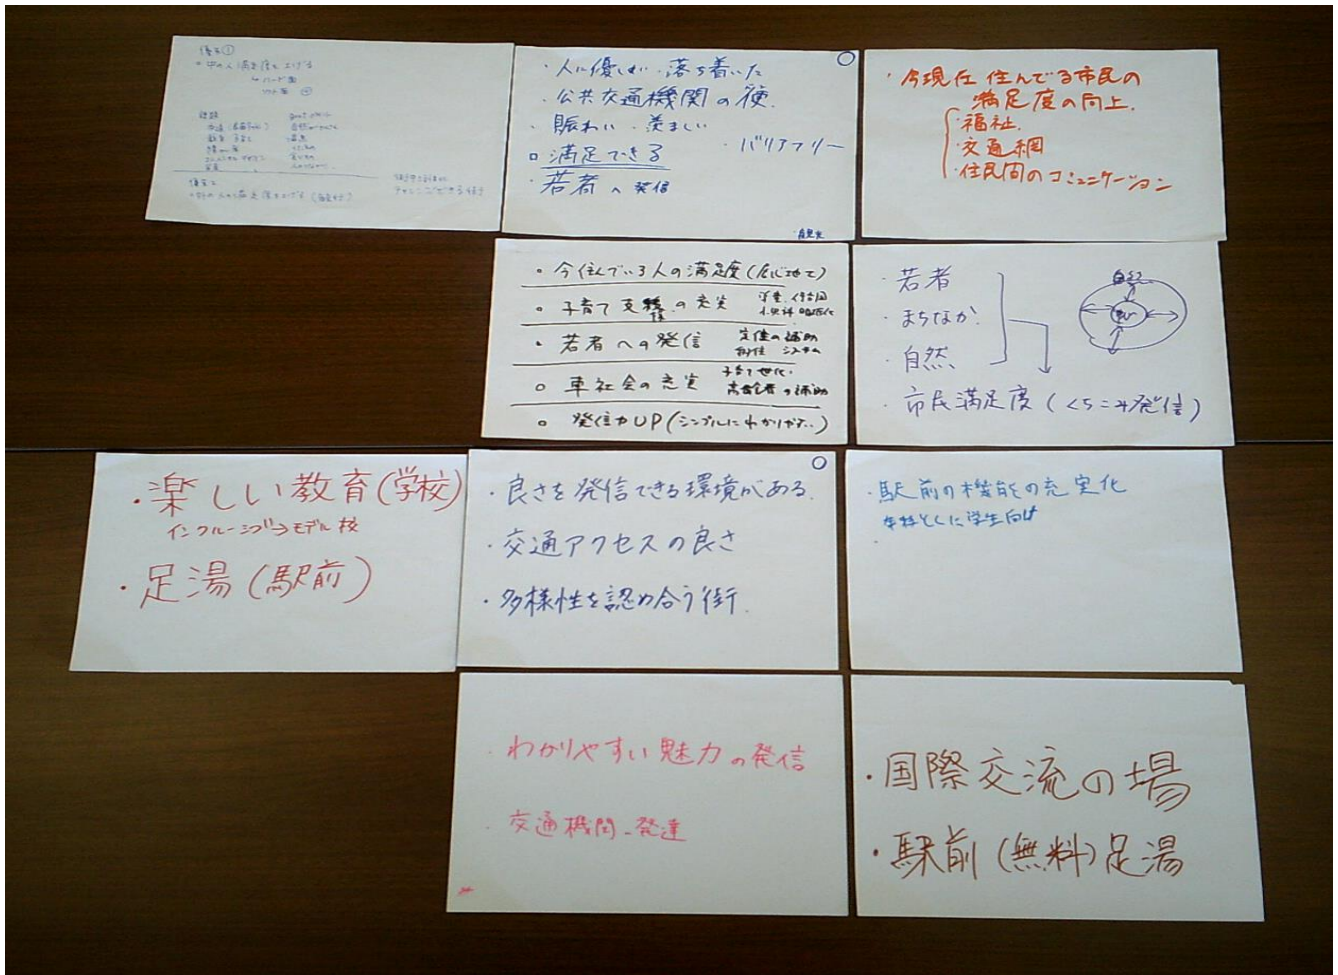 優先①
・中の人 満足度を上げる
ハード面
ソフト面
課題
優先2
・人に優しい・落ち着いた
・公共交通機関の便
・賑わい・羨ましい
・バリアフリー
満足できる
若者へ 発信
・今現在 住んでる市民の
満足度の向上.
・福祉.
・交通網
・住民間のコミュニケーション
。今住んでいる人の満足度(居心地)
。子育て支援の充実
・若者への発信
定住の補助
システム
。車社会の充実
子育て世代・
高齢者の補助
。発信力UP(シンプルにわかりやすく..)
・若者
・まちなか.
・自然、
・市民満足度(くちこみ発信)
・楽しい教育(学校)
インクルーシブ→モデル校
・足湯(駅前)
・良さを発信できる環境がある.
・交通アクセスの良さ
・多様性を認め合う街.
・駅前の機能の充実化
学生向け
・わかりやすい魅力の発信
・交通機関 発達
・国際交流の場
・駅前(無料)足湯